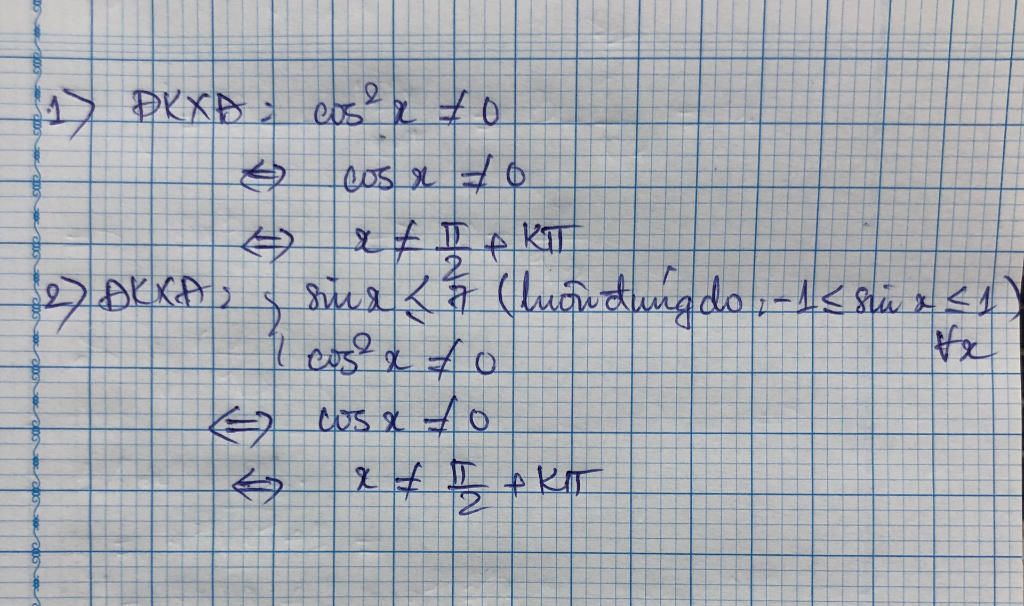 1) ĐKXĐ: cos²x ≠ 0
⇔ cos x ≠ 0
⇔ x ≠ π/2 + Kπ
2) ĐKXĐ: { sin x ≤ 7 (luôn đúng do: -1 ≤ sin x ≤ 1)
∀x
cos²x ≠ 0
⇔ cos x ≠ 0
⇔ x ≠ π/2 + Kπ